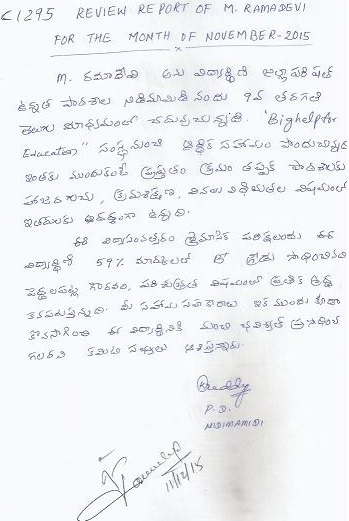 C1295 REVIEW REPORT OF M. RAMADEVI
FOR THE MONTH OF NOVEMBER-2015
M. రమాదేవి అను విద్యార్థిని జిల్లా పరిషత్
ఉన్నత పాఠశాల నిడిమామిడి నందు 9వ తరగతి
తెలుగు మాధ్యమంలో చదువుచున్నది. 'Bighelp for
Education" సంస్థ నుంచి ఆర్థిక సహాయం పొందుచున్నది
ఇంతకు ముందుకంటే ప్రస్తుతం క్రమం తప్పక పాఠశాలకు
హాజరగుట, క్రమశిక్షణ, వినయ విధేయతల విషయంలో
ఇతరులకు ఆదర్శంగా ఉన్నది.
ఈ విద్యాసంవత్సరం త్రైమాసిక పరీక్షలందు ఈ
విద్యార్థిని 59% మార్కులతో గ్రేడు సాధించినది
పెద్దలపట్ల గౌరవం, పరిశుభ్రత విషయంలో ప్రత్యేక శ్రద్ధ
కనపరుస్తున్నది. మీ సహాయ సహకారాలు ఇక ముందు కూడా
కొనసాగించి ఈ విద్యార్థినికి మంచి భవిష్యత్
గలరని కమిటీ సభ్యులు ఆశిస్తున్నారు.
Reddy
P.D.
NIDIMAMIDI
11/12/15